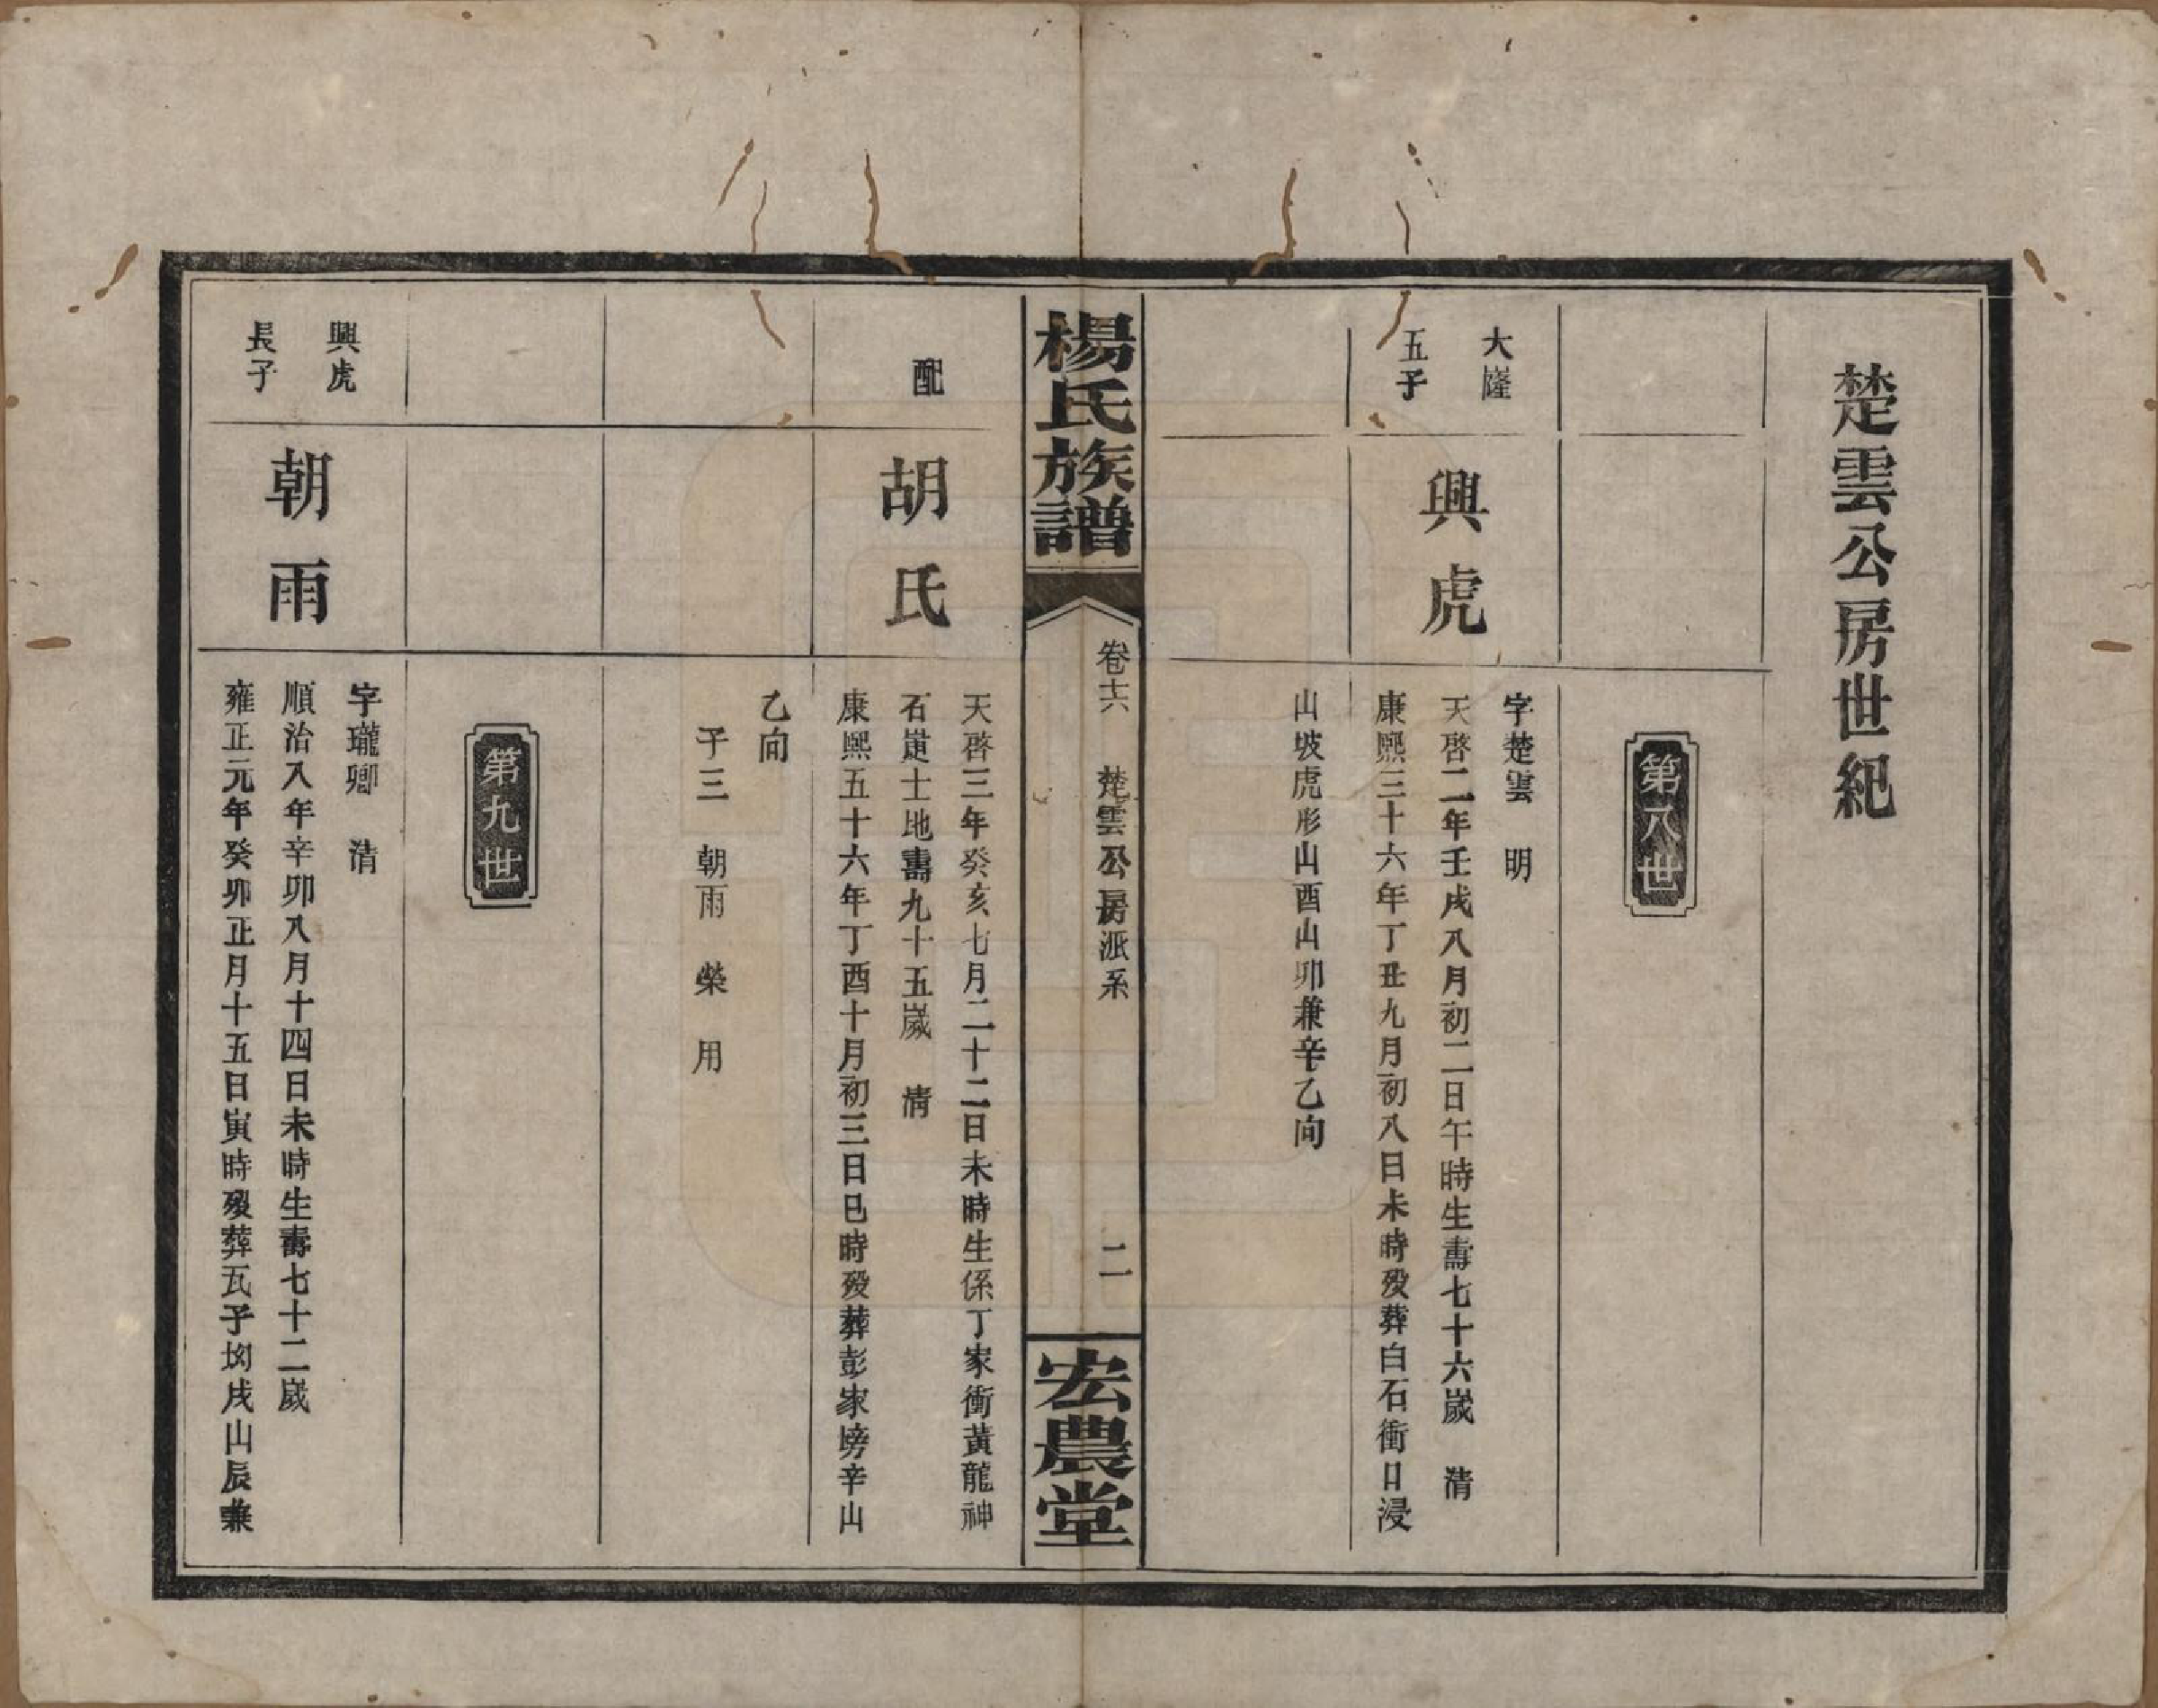 楚雲公房世紀
第八世
大隆
五子
興虎
字楚雲　明
天啓二年壬戌八月初二日午時生壽七十六歲　清
康熙三十六年丁丑九月初八日未時殁葬白石衝口浸
山坡虎形山酉山卯兼辛乙向
楊氏族譜
卷十六　楚雲公房派系
二
宏農堂
配
胡氏
天啓三年癸亥七月二十二日未時生係丁家衝黃龍神
石崀士地壽九十五歲　清
康熙五十六年丁酉十月初三日巳時殁葬彭家塝辛山
乙向
子三　朝雨　榮　用
第九世
興虎
長子
朝雨
字瓏卿　清
順治八年辛卯八月十四日未時生壽七十二歲
雍正元年癸卯正月十五日寅時殁葬瓦子坳戌山辰兼